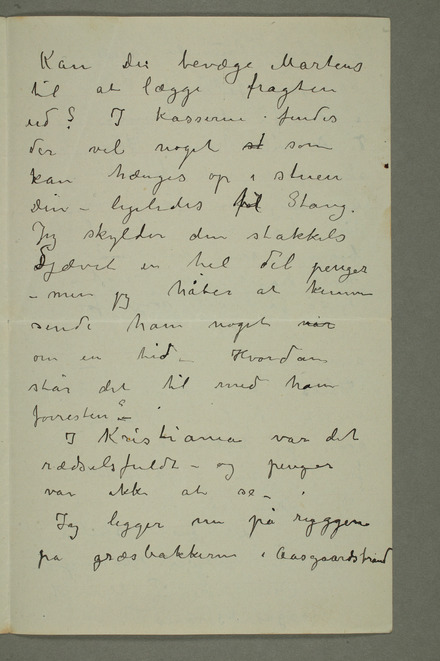 Kan Du bevæge Martens
til at lægge fragten
ud? I Kasserne findes
der vel noget st som
kan hænges op i stuen
Din – ligeledes til Stang.
Jeg skylder den stakkels
Djævel en hel del penger
– men jeg håber at kunne
sende ham noget når
om en tid – Hvordan
står det til med ham
forresten? –
I Kristiania var det
rædselsfuldt – og penger
var ikke at se –
Jeg ligger nu på ryggen
på græsbakkerne i Aasgaardstrand